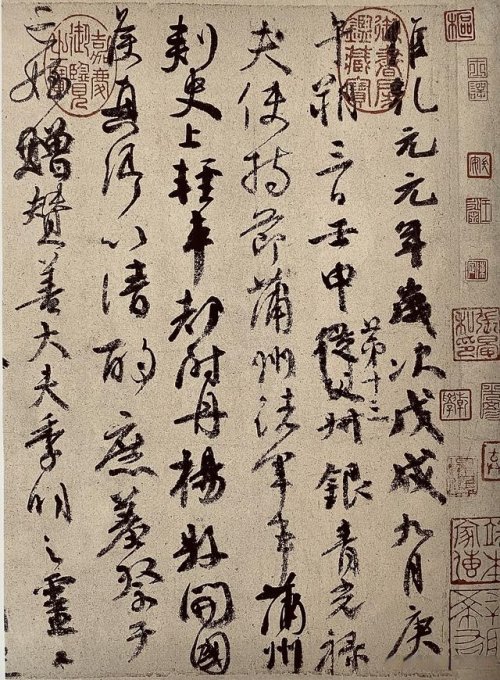 維乾元元年歲次戊戌九月庚
午朔三日壬申第十三叔銀青光祿
夫使持節蒲州諸軍事蒲州
刺史上輕車都尉丹楊縣開國
侯真卿以清酌庶羞祭于
亡姪贈贊善大夫季明之靈曰
御書房鑑藏寶
嘉慶御覽之寶
樞